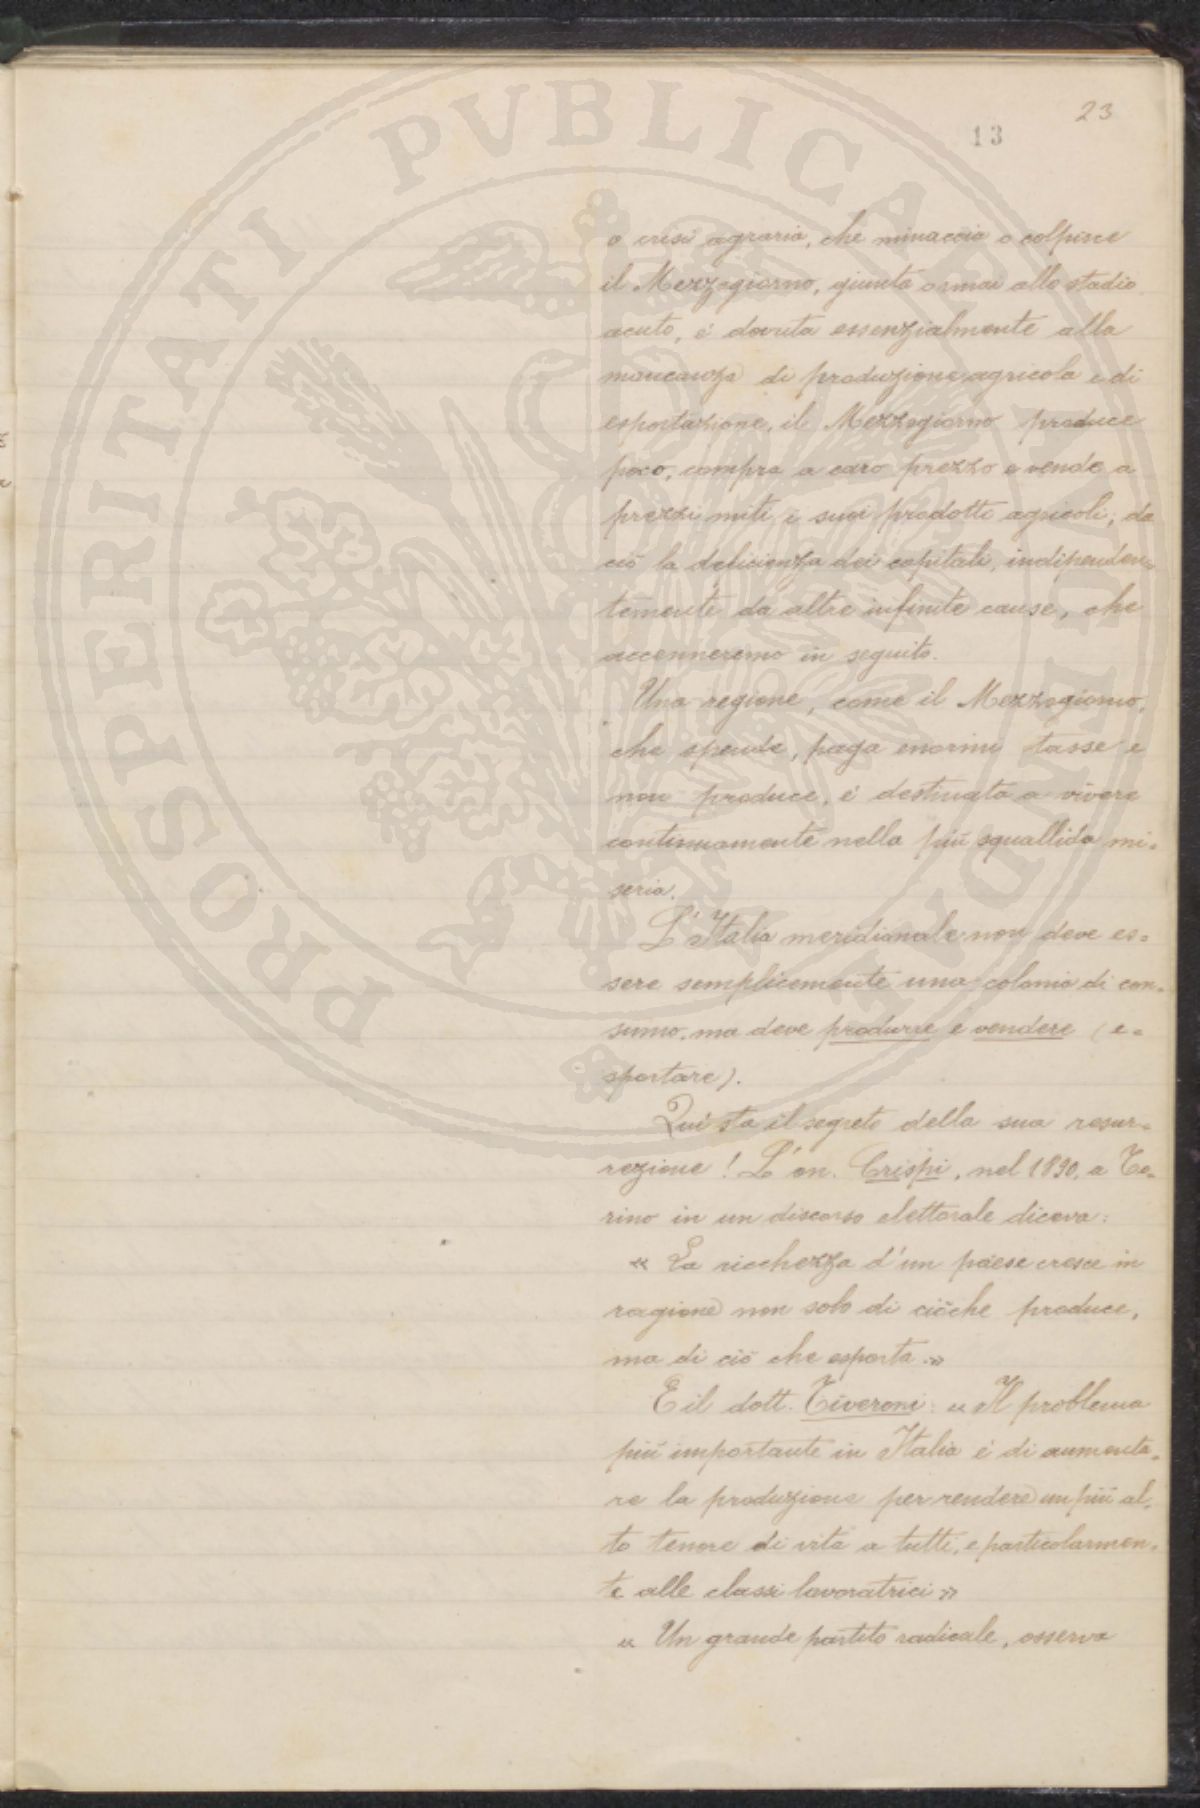 23
13
o crisi agraria, che minaccia o colpisce
il Mezzogiorno, giunta ormai allo stadio
acuto, é dovuta essenzialmente alla
mancanza di produzione agricola e di
esportazione, il Mezzogiorno produce
poco, compra a caro prezzo e vende a
prezzi miti i suoi prodotti agricoli; da
ciò la deficienza dei capitali, indipenden=
temente da altre infinite cause, che
accenneremo in seguito.
Una regione, come il Mezzogiorno,
che spende, paga enormi tasse e
non produce, é destinata a vivere
continuamente nella più squallida mi=
seria.
L'Italia meridionale non deve es=
sere semplicemente una colonia di con=
sumo, ma deve produrre e vendere (e=
sportare).
Qui sta il segreto della sua resur=
rezione! L'on. Crispi, nel 1890, a To=
rino in un discorso elettorale diceva:
« La ricchezza d'un paese cresce in
ragione non solo di ciò che produce,
ma di ciò che esporta.»
E il dott. Tiveroni: « Il problema
più importante in Italia é di aumenta=
re la produzione per rendere un più al=
to tenore di vita a tutti, e particolarmen=
te alle classi lavoratrici »
« Un grande partito radicale, osserva
PROSPERITATI PVBLICAE AVGENDAE